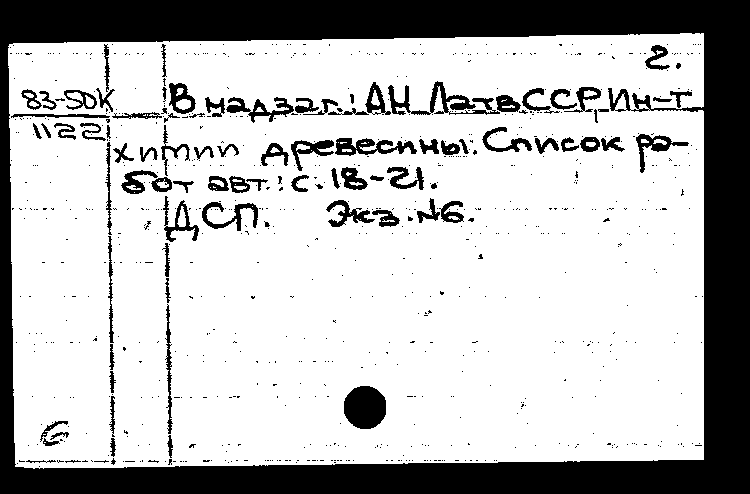 2.
83-5DK В надзаг.: АН ЛатвССР, Ин-т
1122
химии древесины. Список ра-
бот авт.: с. 18-21.
ДСП. Экз. №6.
6